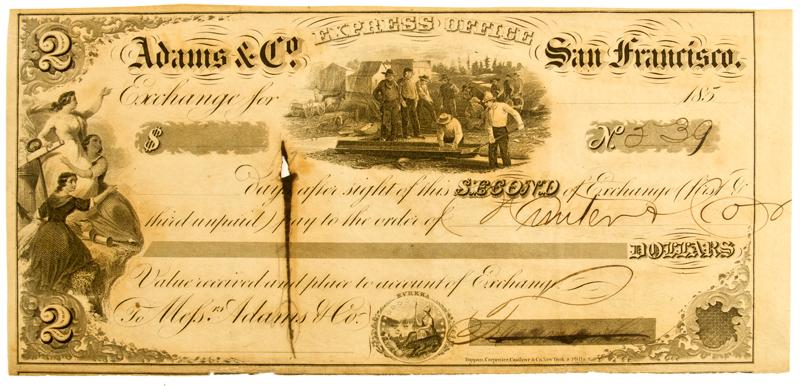 2
EXPRESS OFFICE
Adams & Co. San Francisco.
Exchange for 185
$ No 239
days after sight of this SECOND of Exchange (first &
third unpaid) pay to the order of Hunter & Co
DOLLARS
Value received and place to account of Exchange
2 To Mess.rs Adams & Co.
EUREKA
Toppan, Carpenter, Casilear & Co. New York & Phila.